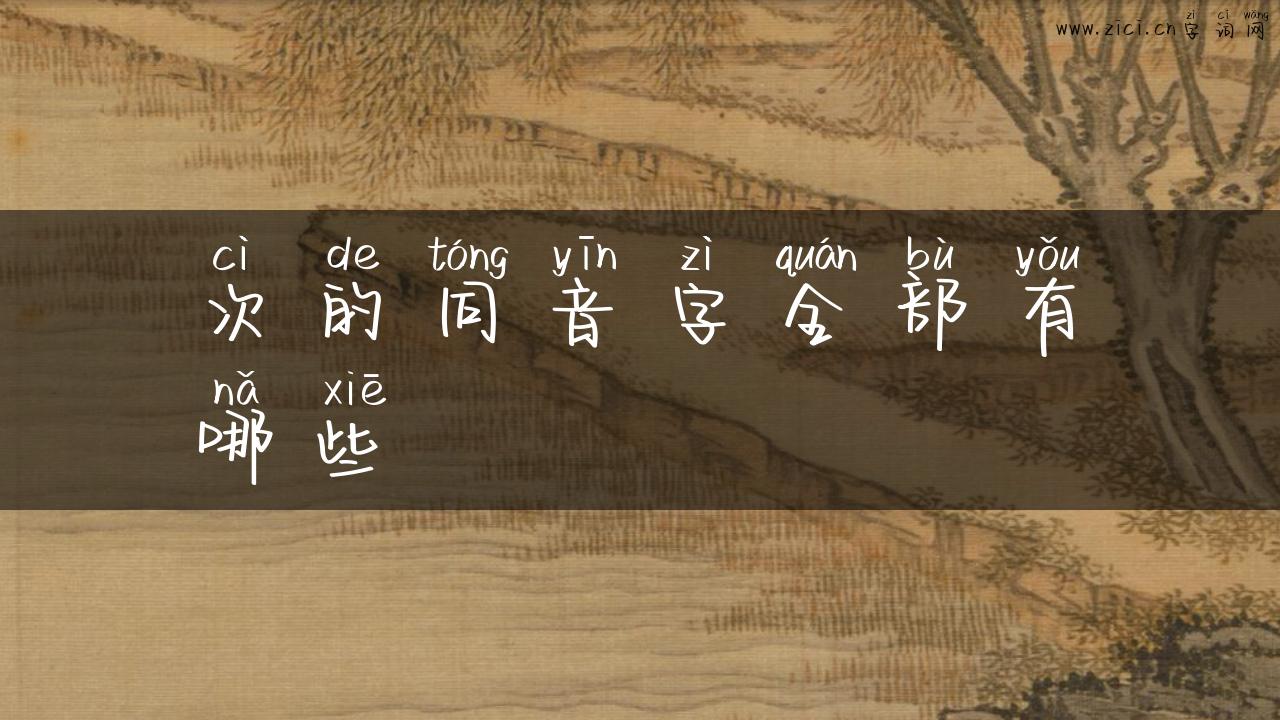 zì cí wǎng
www.zici.cn字词网
cì de tóng yīn zì quán bù yǒu
次的同音字全部有
nǎ xiē
哪些